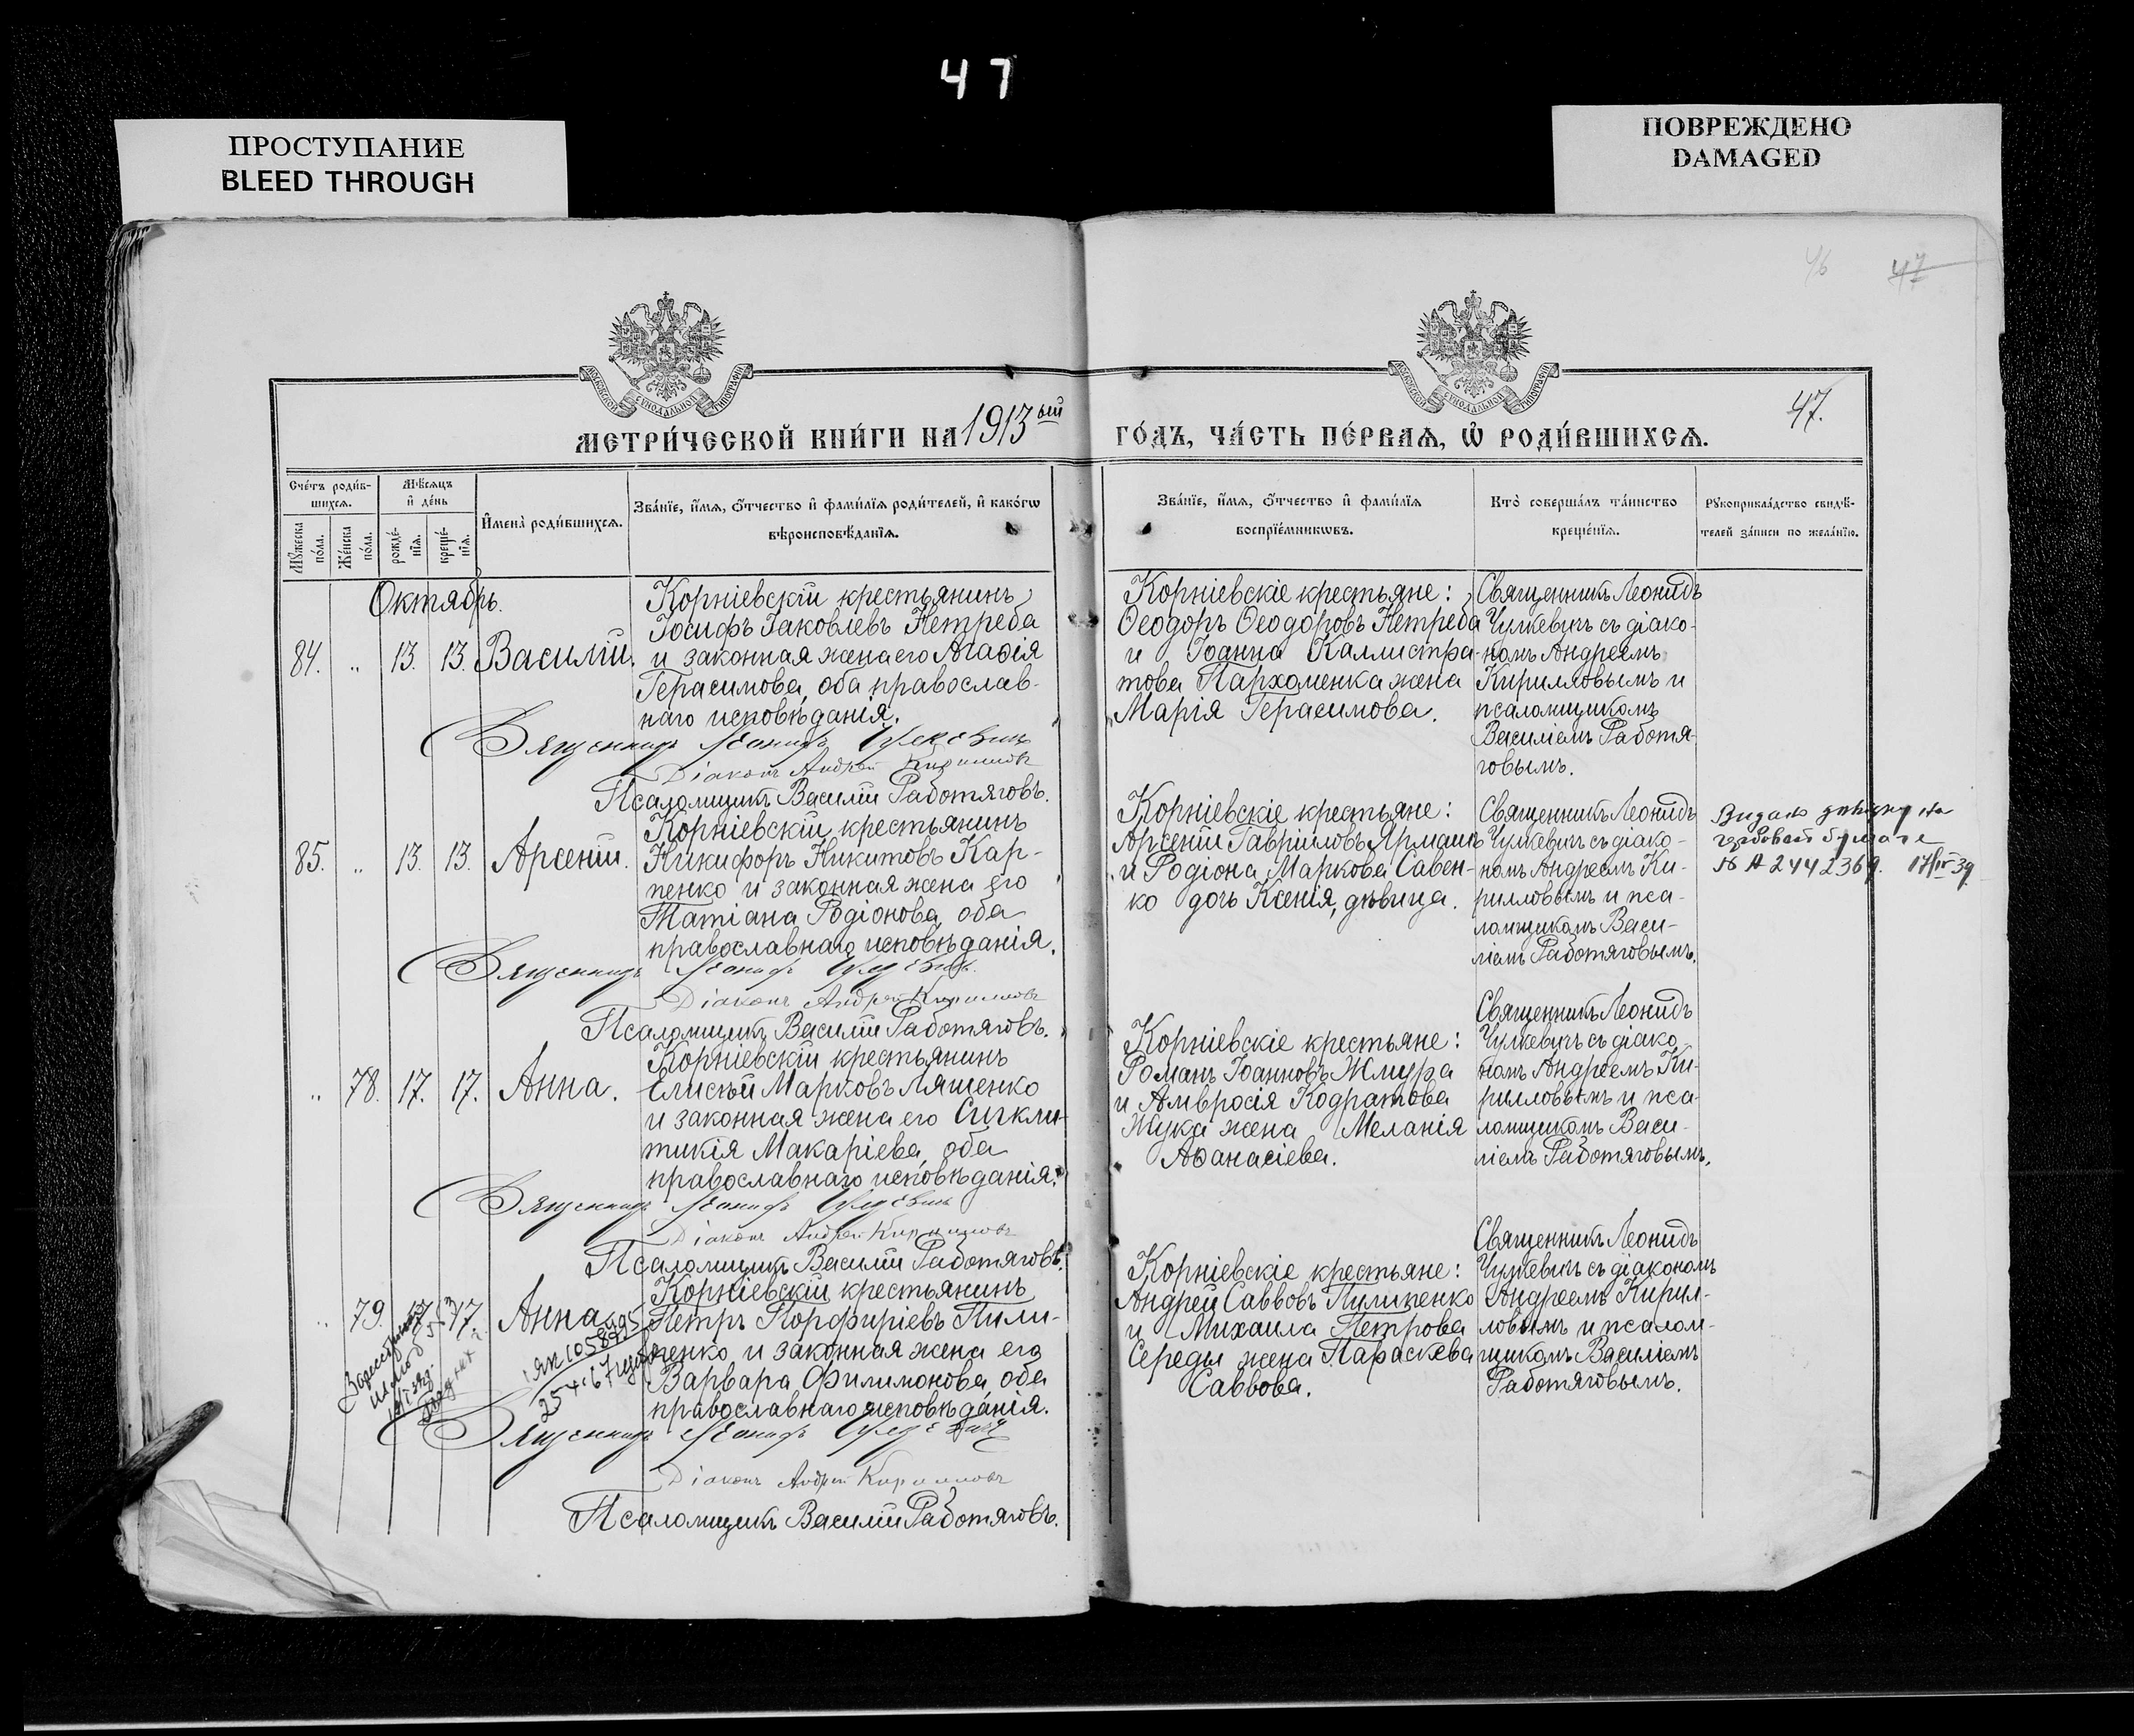 47
ПРОСТУПАНИЕ
BLEED THROUGH
ПОВРЕЖДЕНО
DAMAGED
46
47
МОСКОВСКОЙ СѴНОДАЛЬНОЙ ТИПОГРАФІИ
МОСКОВСКОЙ СѴНОДАЛЬНОЙ ТИПОГРАФІИ
МЕТРИ́ЧЕСКОЙ КНИ́ГИ НА 1913ый
ГО́ДЪ, ЧА́СТЬ ПЕ́РВАѦ, Ѡ҆ РОДИ́ВШИХСѦ.
47.
Сче́тъ роди́в-
шихсѧ.
Мꙋ́жеска
по́ла.
Же́нска
по́ла.
Мѣ́сѧцъ
и҆ де́нь
рожде́-
нїѧ.
креще́-
нїѧ.
И҆мена̀ роди́вшихсѧ.
Зва́нїе, и҆́мѧ, ѻ҆́тчество и҆ фами́лїѧ роди́телей, и҆ како́гѡ
вѣроисповѣ́данїѧ.
Зва́нїе, и҆́мѧ, ѻ҆́тчество и҆ фами́лїѧ
воспрїе́мникѡвъ.
Кто̀ соверша́лъ та́инство
креще́нїѧ.
Рꙋкоприкла́дство свидѣ́-
телей за́писи по жела́нїю.
Октябрь.
84. „ 13. 13. Василій.
Корніевскій крестьянинъ
Іосифъ Іаковлевъ Нетреба
и законная жена его Агаѳія
Герасимова, оба православ-
наго исповѣданія.
Священникъ Леонидъ Чулкевичъ
Діаконъ Андрей Кирилловъ
Псаломщикъ Василій Работяговъ.
Корніевскіе крестьяне:
Ѳеодоръ Ѳеодоровъ Нетреба
и Іоанна Каллистра-
това Пархоменка жена
Марія Герасимова.
Священникъ Леонидъ
Чулкевичъ съ діако-
номъ Андреемъ
Кирилловымъ и
псаломщикомъ
Василіемъ Работя-
говымъ.
85. „ 13. 13. Арсеній.
Корніевскій крестьянинъ
Никифоръ Никитовъ Кар-
пенко и законная жена его
Татіана Родіонова, оба
православнаго исповѣданія.
Священникъ Леонидъ Чулкевичъ
Діаконъ Андрей Кирилловъ
Псаломщикъ Василій Работяговъ.
Корніевскіе крестьяне:
Арсеній Гавріиловъ Ярмашъ
и Родіона Маркова Савен-
ко дочь Ксенія, дѣвица.
Священникъ Леонидъ
Чулкевичъ съ діако-
номъ Андреемъ Ки-
рилловымъ и пса-
ломщикомъ Васи-
ліемъ Работяговымъ.
Видано на
гербовой бумаге
№ А 2442369. 17/IV 39
„ 78. 17. 17. Анна.
Корніевскій крестьянинъ
Елисѣй Марковъ Ляшенко
и законная жена его Сигкли-
тикія Макаріева, оба
православнаго исповѣданія.
Священникъ Леонидъ Чулкевичъ
Діаконъ Андрей Кирилловъ
Псаломщикъ Василій Работяговъ.
Корніевскіе крестьяне:
Романъ Іоанновъ Жмура
и Амвросія Кодратова
Жука жена Меланія
Аѳанасіева.
Священникъ Леонидъ
Чулкевичъ съ діако
номъ Андреемъ Ки-
рилловымъ и пса-
ломщикомъ Васи-
ліемъ Работяговымъ.
„ 79. 17. 17. Анна
Корніевскій крестьянинъ
Петръ Порфиріевъ Пили-
пенко и законная жена его
Варвара Филимонова, оба
православнаго исповѣданія.
Священникъ Леонидъ Чулкевичъ
Діаконъ Андрей Кирилловъ
Псаломщикъ Василій Работяговъ.
Корніевскіе крестьяне:
Андрей Саввовъ Пилипенко
и Михаила Петрова
Середы жена Параскева
Саввова.
Священникъ Леонидъ
Чулкевичъ съ діакономъ
Андреемъ Кирил-
ловымъ и псалом-
щикомъ Василіемъ
Работяговымъ.